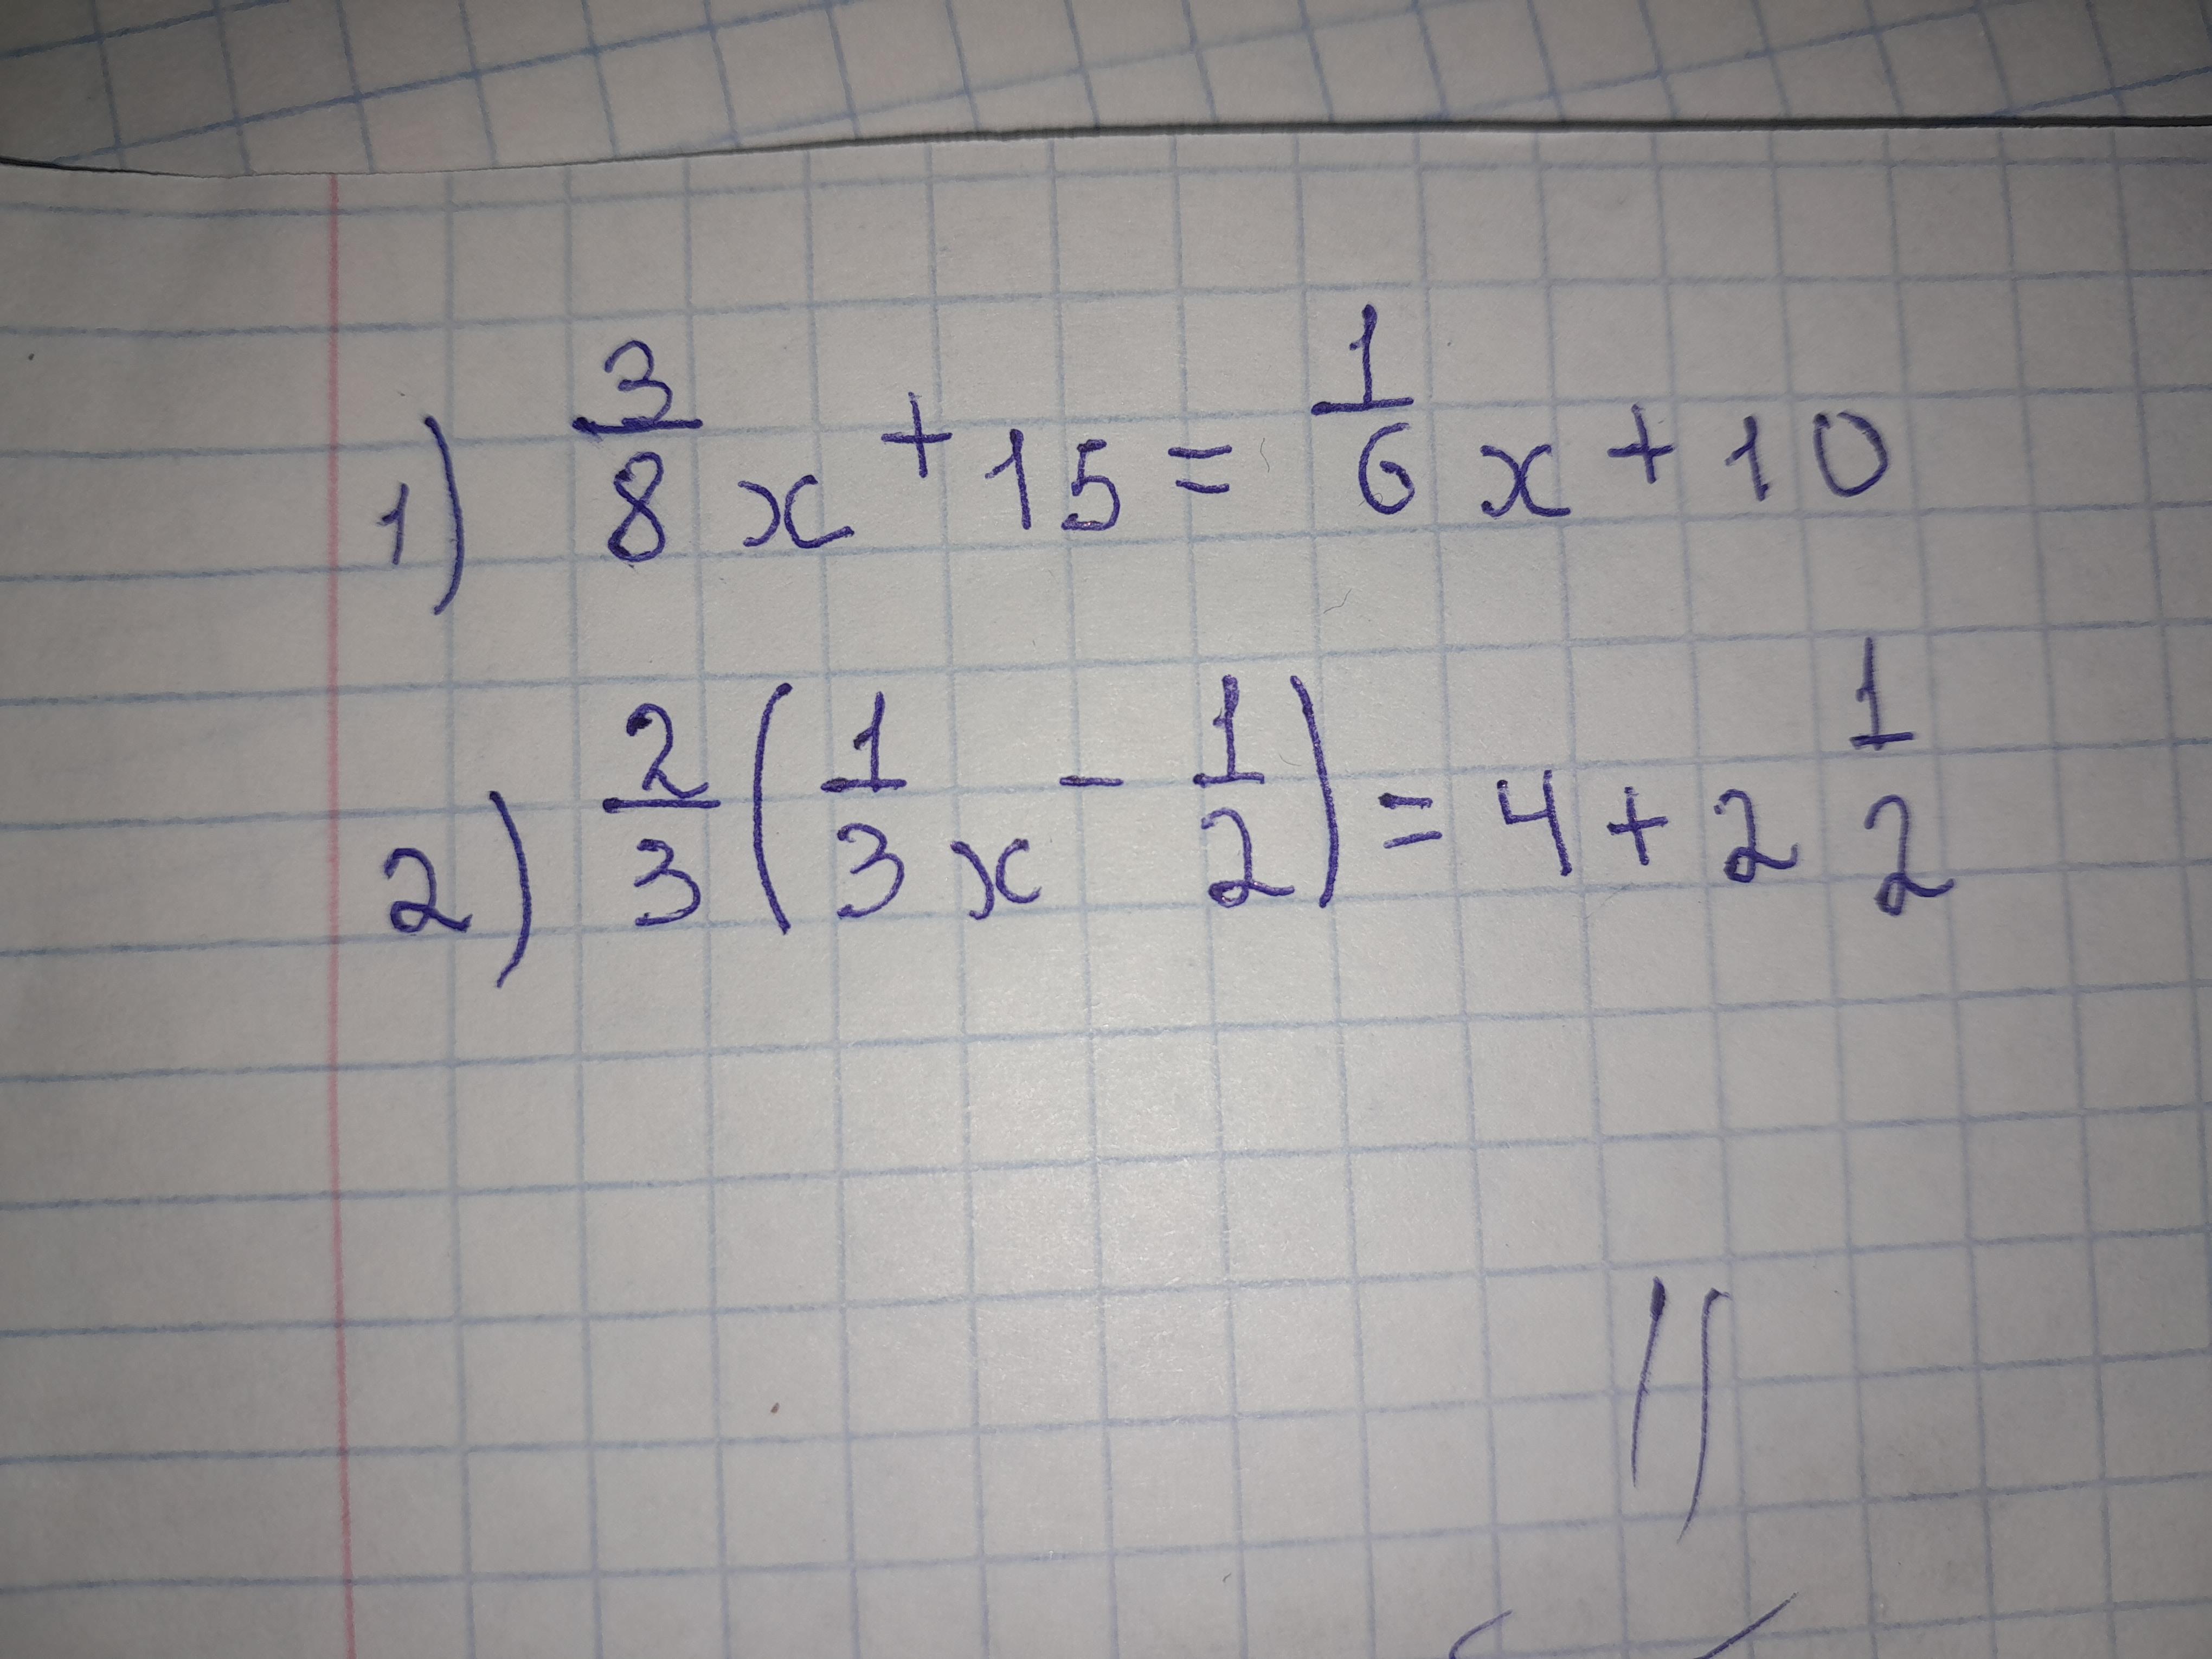 1) 3/8 x + 15 = 1/6 x + 10
2) 2/3 (1/3 x - 1/2) = 4 + 2 1/2